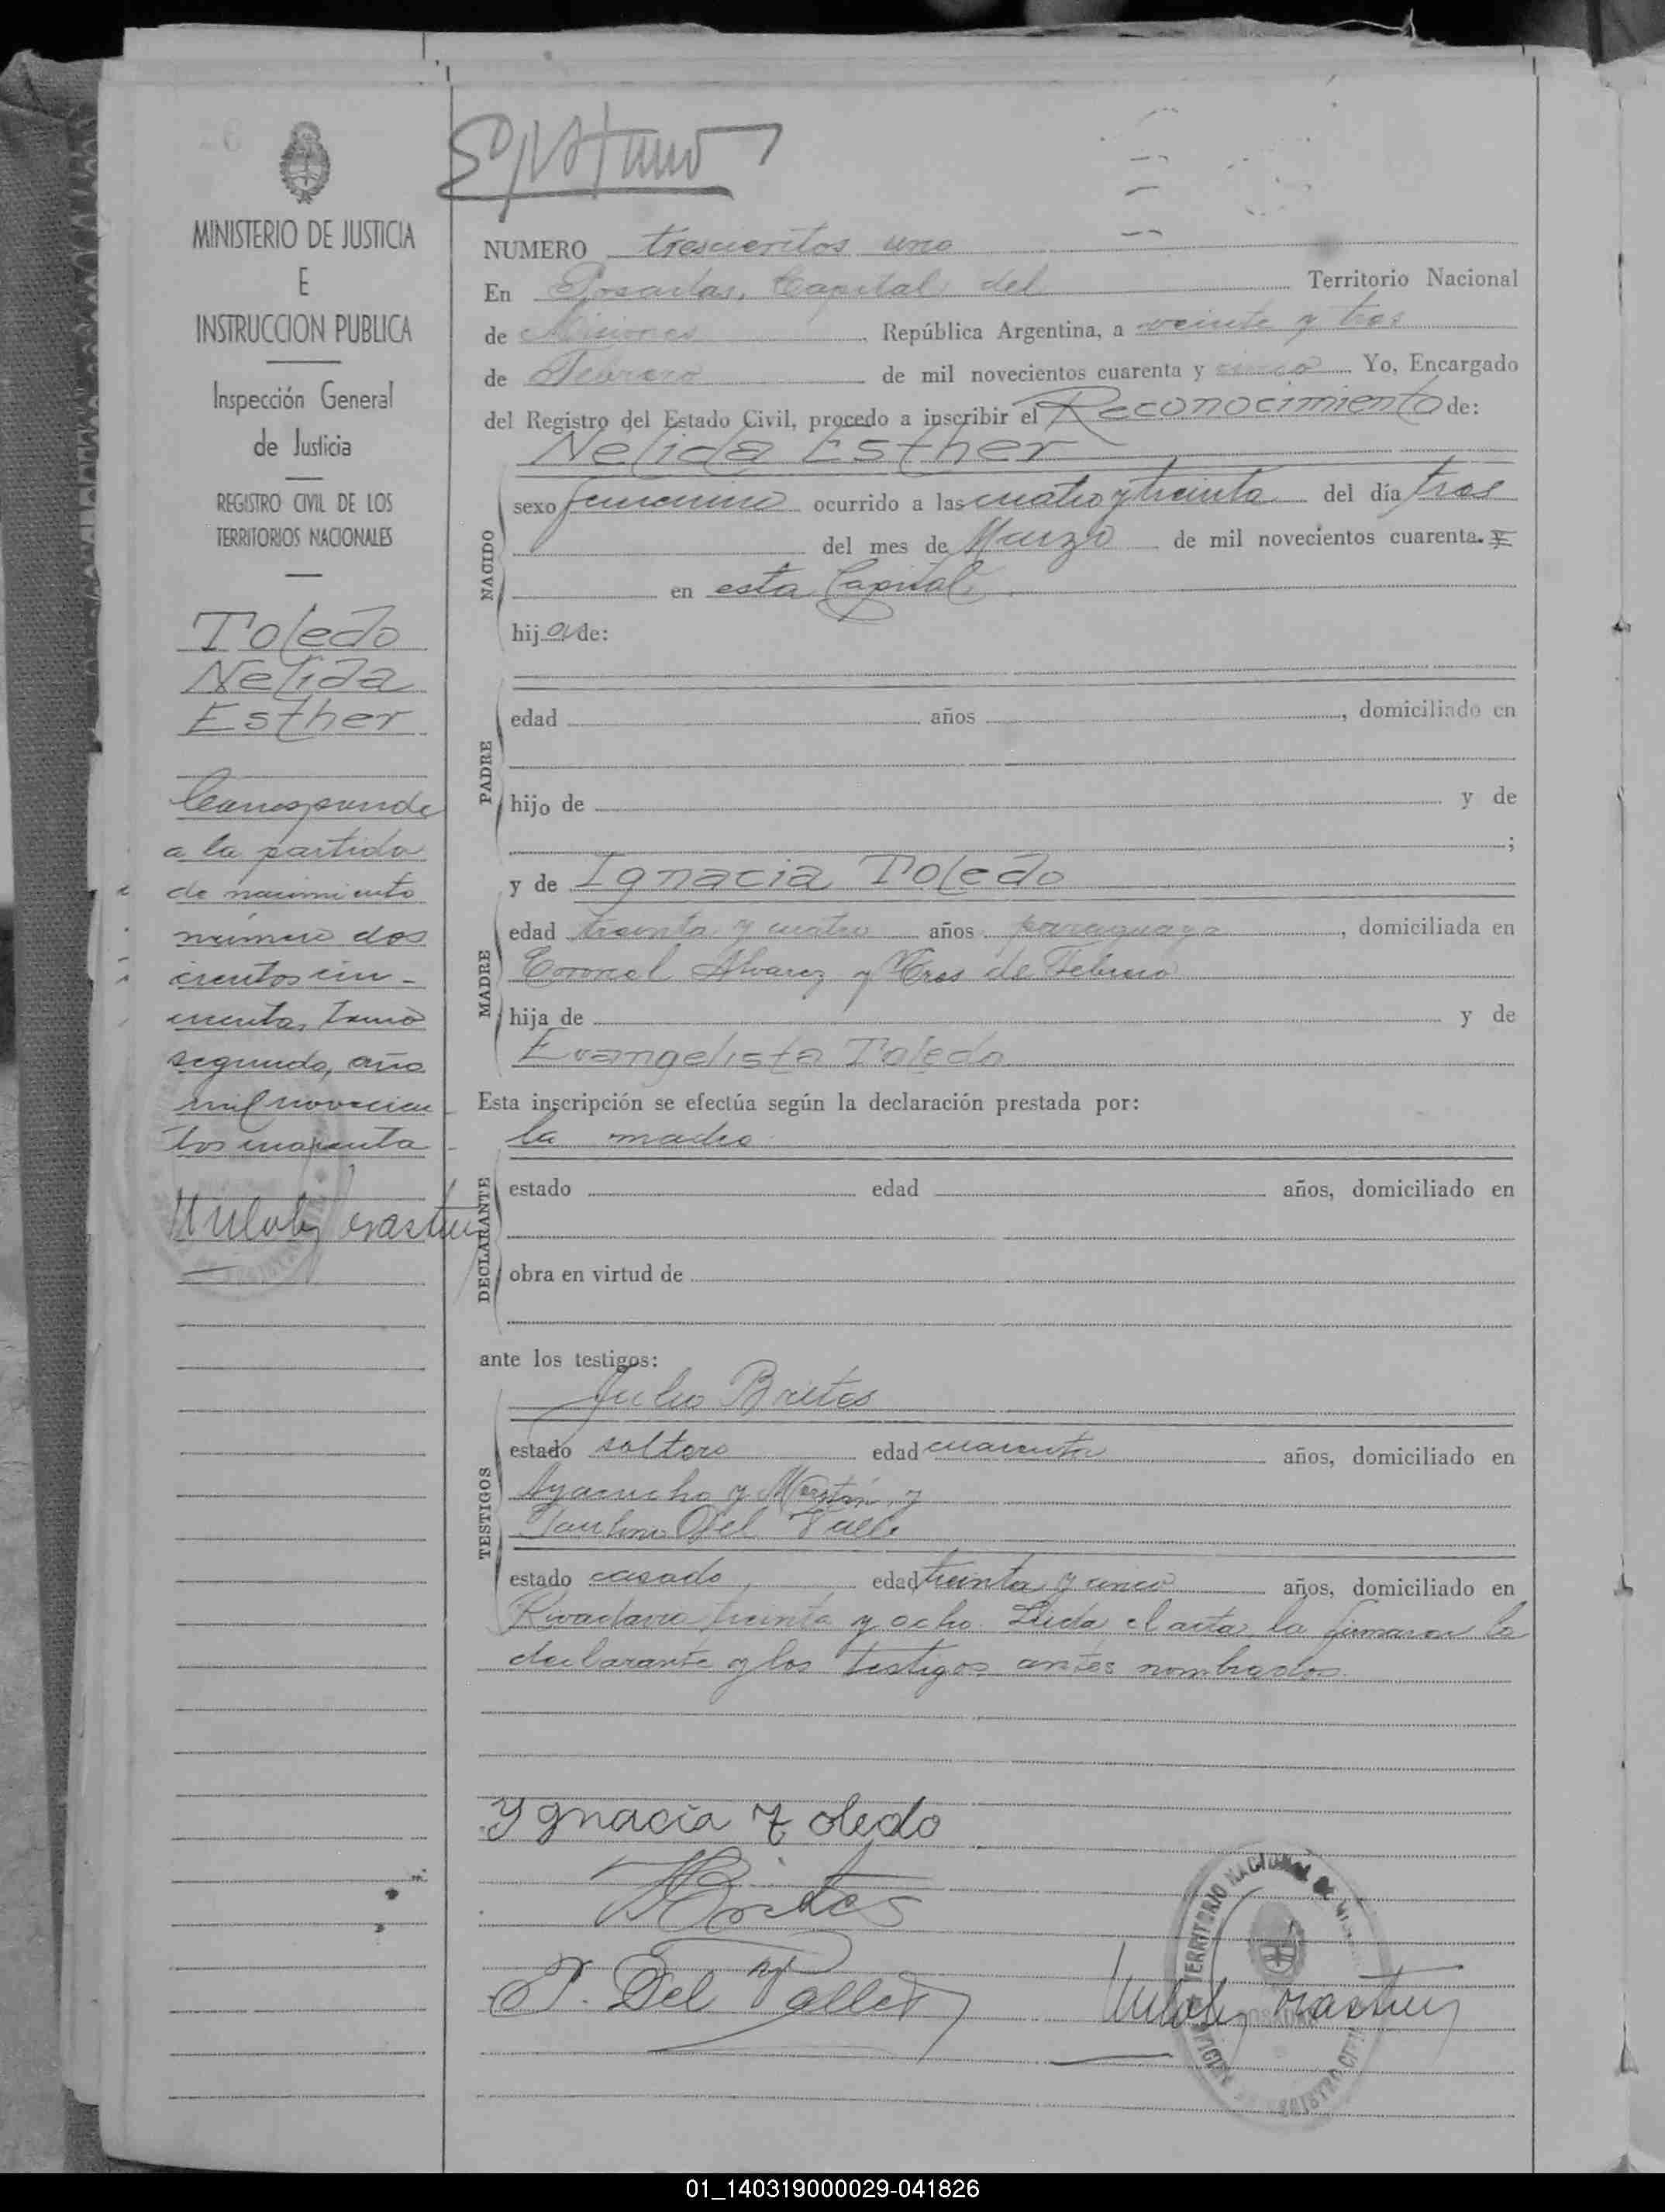 MINISTERIO DE JUSTICIA
E
INSTRUCCION PUBLICA
Inspección General
de Justicia
REGISTRO CIVIL DE LOS
TERRITORIOS NACIONALES
Toledo
Nelida
Esther
Corresponde
a la partida
de nacimiento
número dos
cientos cin-
cuenta, tomo
segundo, año
mil novecien
tos cuarenta
NUMERO trescientos uno
En Posadas, Capital del Territorio Nacional
de Misiones República Argentina, a veinte y tres
de Febrero de mil novecientos cuarenta y cinco Yo, Encargado
del Registro del Estado Civil, procedo a inscribir el Reconocimiento de:
Nelida Esther
NACIDO
sexo femenino ocurrido a las cuatro y treinta del día tres
del mes de Marzo de mil novecientos cuarenta.
en esta Capital
hija de:
PADRE
edad años , domiciliado en
hijo de y de
;
y de Ignacia Toledo
MADRE
edad treinta y cuatro años paraguaya , domiciliada en
Coronel Alvarez y Tres de Febrero
hija de y de
Evangelista Toledo
Esta inscripción se efectúa según la declaración prestada por:
la madre
DECLARANTE
estado edad años, domiciliado en
obra en virtud de
ante los testigos:
Julio Brites
TESTIGOS
estado soltero edad cuarenta años, domiciliado en
Ayacucho y y
Paulino Del Valle
estado casado, edad treinta y cinco años, domiciliado en
Rivadavia treinta y ocho. Leida el acta, la firmaron la
declarante y los testigos antes nombrados.
Ygnacia Toledo
Brites
P. Del Valle
TERRITORIO NACIONAL DE
REGISTRO CIVIL
01_140319000029-041826